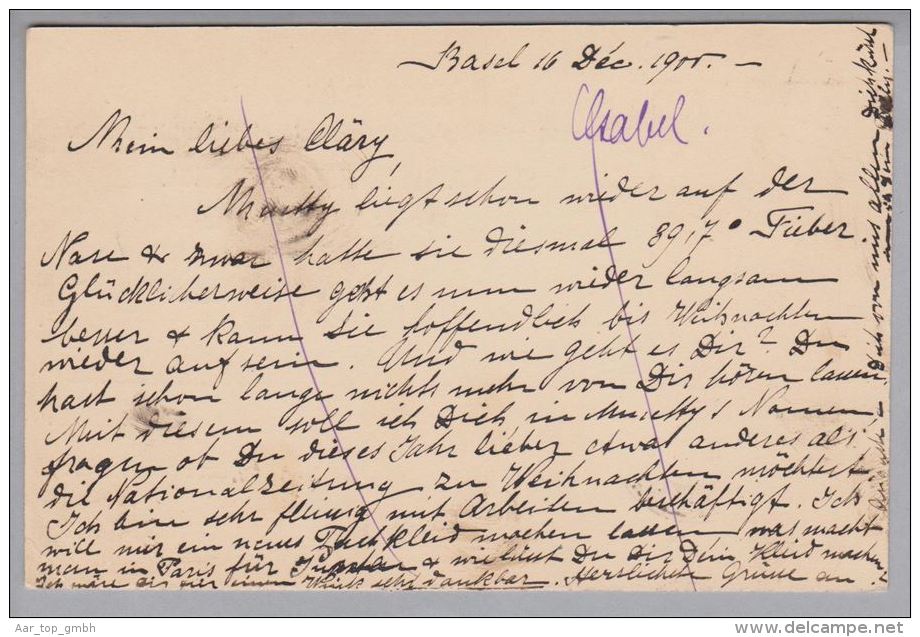 Basel 16 Déc. 1900. –
Isabel.
Mein liebes Cläry,
Mutty liegt schon wieder auf der
Nase & zwar hatte sie diesmal 39,7° Fieber
Glücklicherweise geht es nun wieder langsam
besser & kann sie hoffendlich bis Weihnachten
wieder auf sein. Und wie geht es Dir? Du
hast schon lange nichts mehr von Dir hören lassen.
Mit diesem soll ich Dich in Mutty's Namen
fragen ob Du dieses Jahr lieber etwas anderes als
die Nationalzeitung zu Weihnachten möchtest
Ich bin sehr fleissig mit Arbeiten beschäftigt. Ich
will mir ein neues Tuchkleid machen lassen, was macht
man in Paris für & wie lässt Du Dir Dein Kleid machen.
Ich wäre Dir für einen Wink sehr dankbar. Herzlichste Grüsse an
Dich von uns allen Dich küsst
Aar_top_gmbh
www.delcampe.net